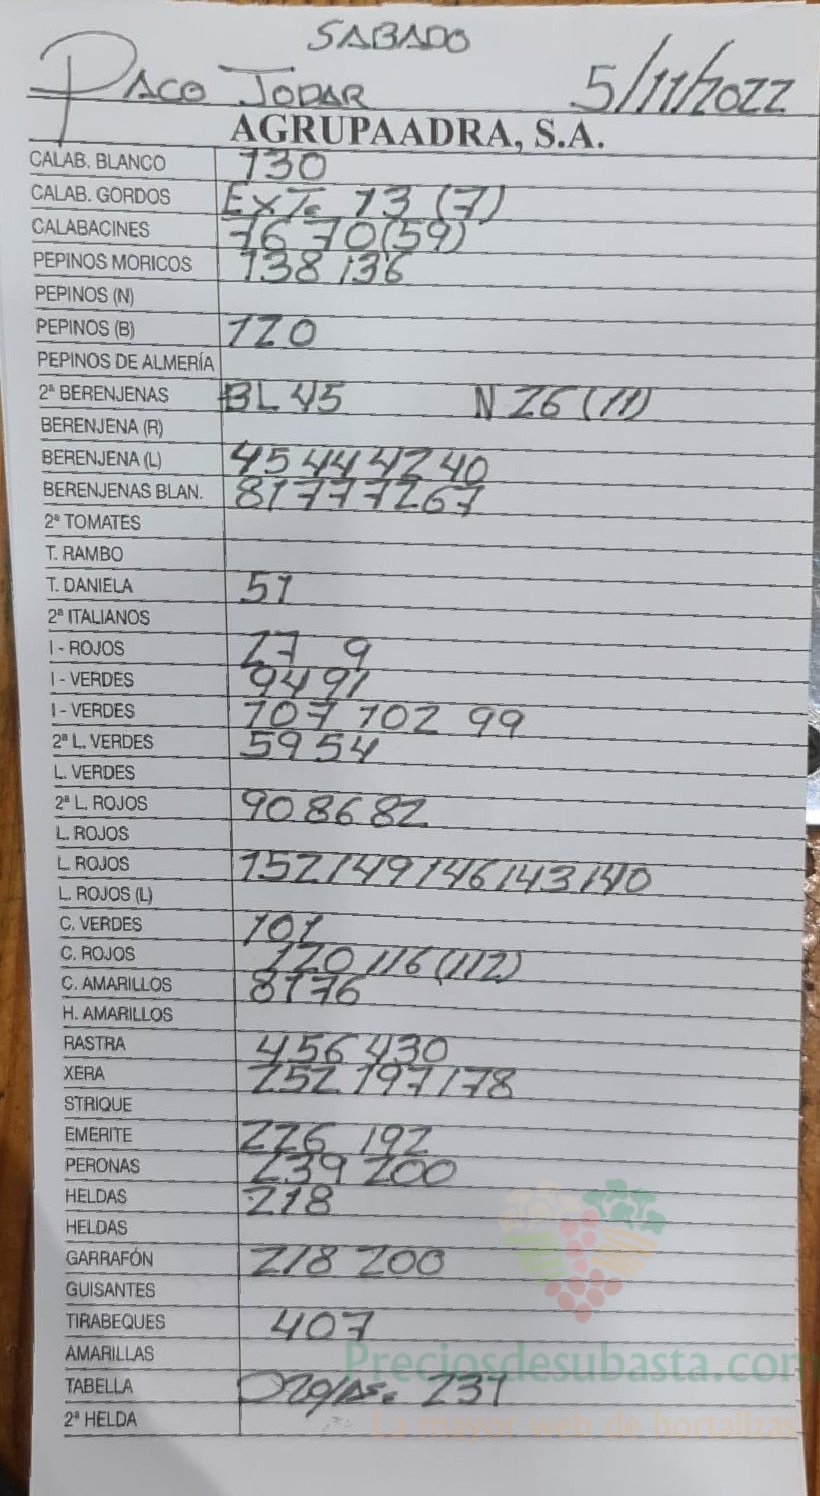 SABADO
PACO JODAR 5/11/2022
AGRUPAADRA, S.A.
CALAB. BLANCO 130
CALAB. GORDOS EXT. 13 (7)
CALABACINES 76 70 (59)
PEPINOS MORICOS 138 136
PEPINOS (N)
PEPINOS (B) 120
PEPINOS DE ALMERÍA
2ª BERENJENAS BL 45 N 26 (11)
BERENJENA (R)
BERENJENA (L) 45 44 42 40
BERENJENAS BLAN. 81 77 72 67
2ª TOMATES
T. RAMBO
T. DANIELA 51
2ª ITALIANOS
I - ROJOS 27 9
I - VERDES 94 91
I - VERDES 107 102 99
2ª L. VERDES 59 54
L. VERDES
2ª L. ROJOS 90 86 82
L. ROJOS
L. ROJOS 152 149 146 143 140
L. ROJOS (L)
C. VERDES 101
C. ROJOS 120 116 (112)
C. AMARILLOS 81 76
H. AMARILLOS
RASTRA 456 430
XERA 252 197 178
STRIQUE
EMERITE 226 192
PERONAS 239 200
HELDAS 218
HELDAS
GARRAFÓN 218 200
GUISANTES
TIRABEQUES 407
AMARILLAS
Preciosdesubasta.com
TABELLA 231
La mayor web de hortalizas
2ª HELDA